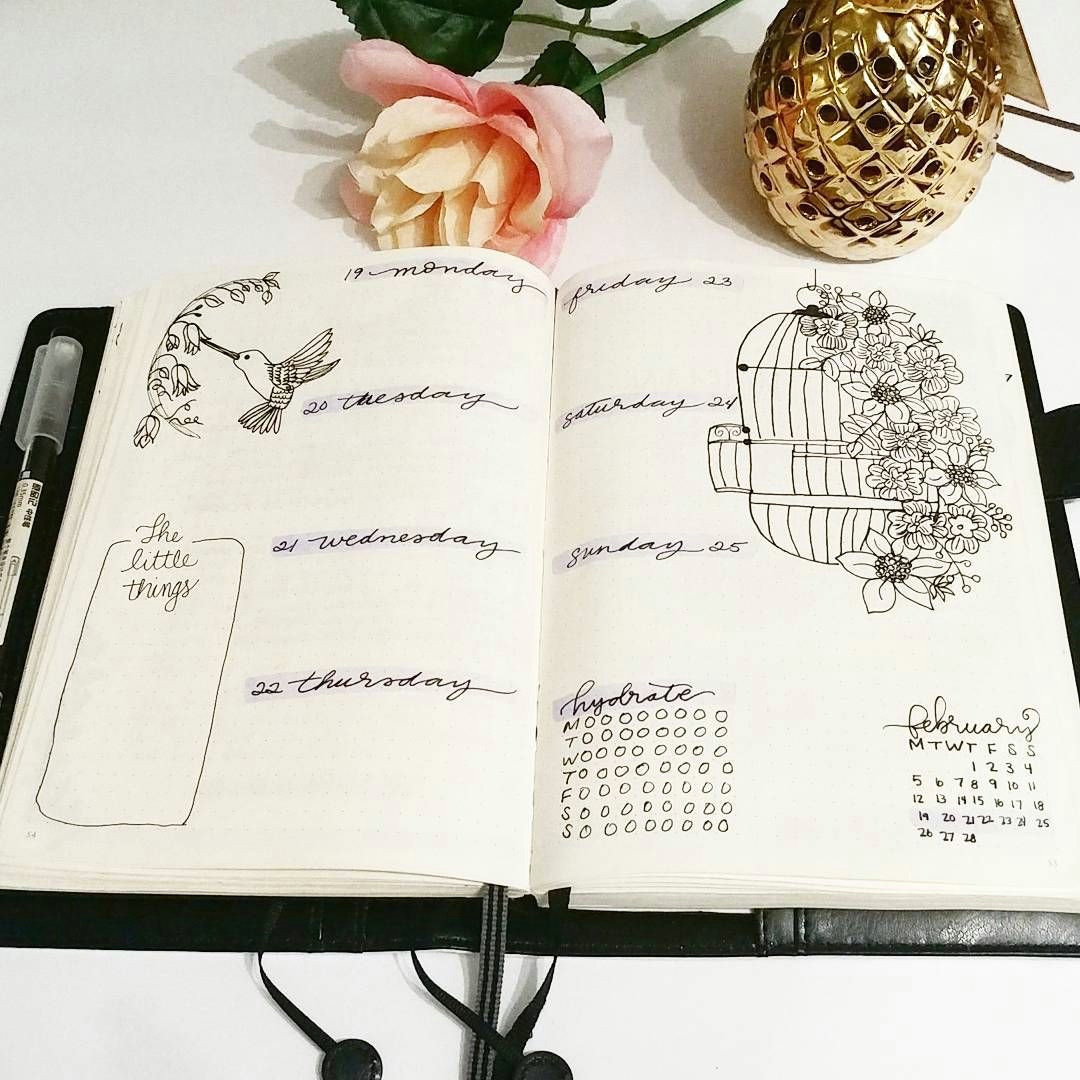 19 monday
20 tuesday
21 wednesday
22 thursday
The
little
things
54
friday 23
saturday 24
sunday 25
hydrate
M
T
W
T
F
S
S
february
M T W T F S S
1 2 3 4
5 6 7 8 9 10 11
12 13 14 15 16 17 18
19 20 21 22 23 24 25
26 27 28
55
0.35mm